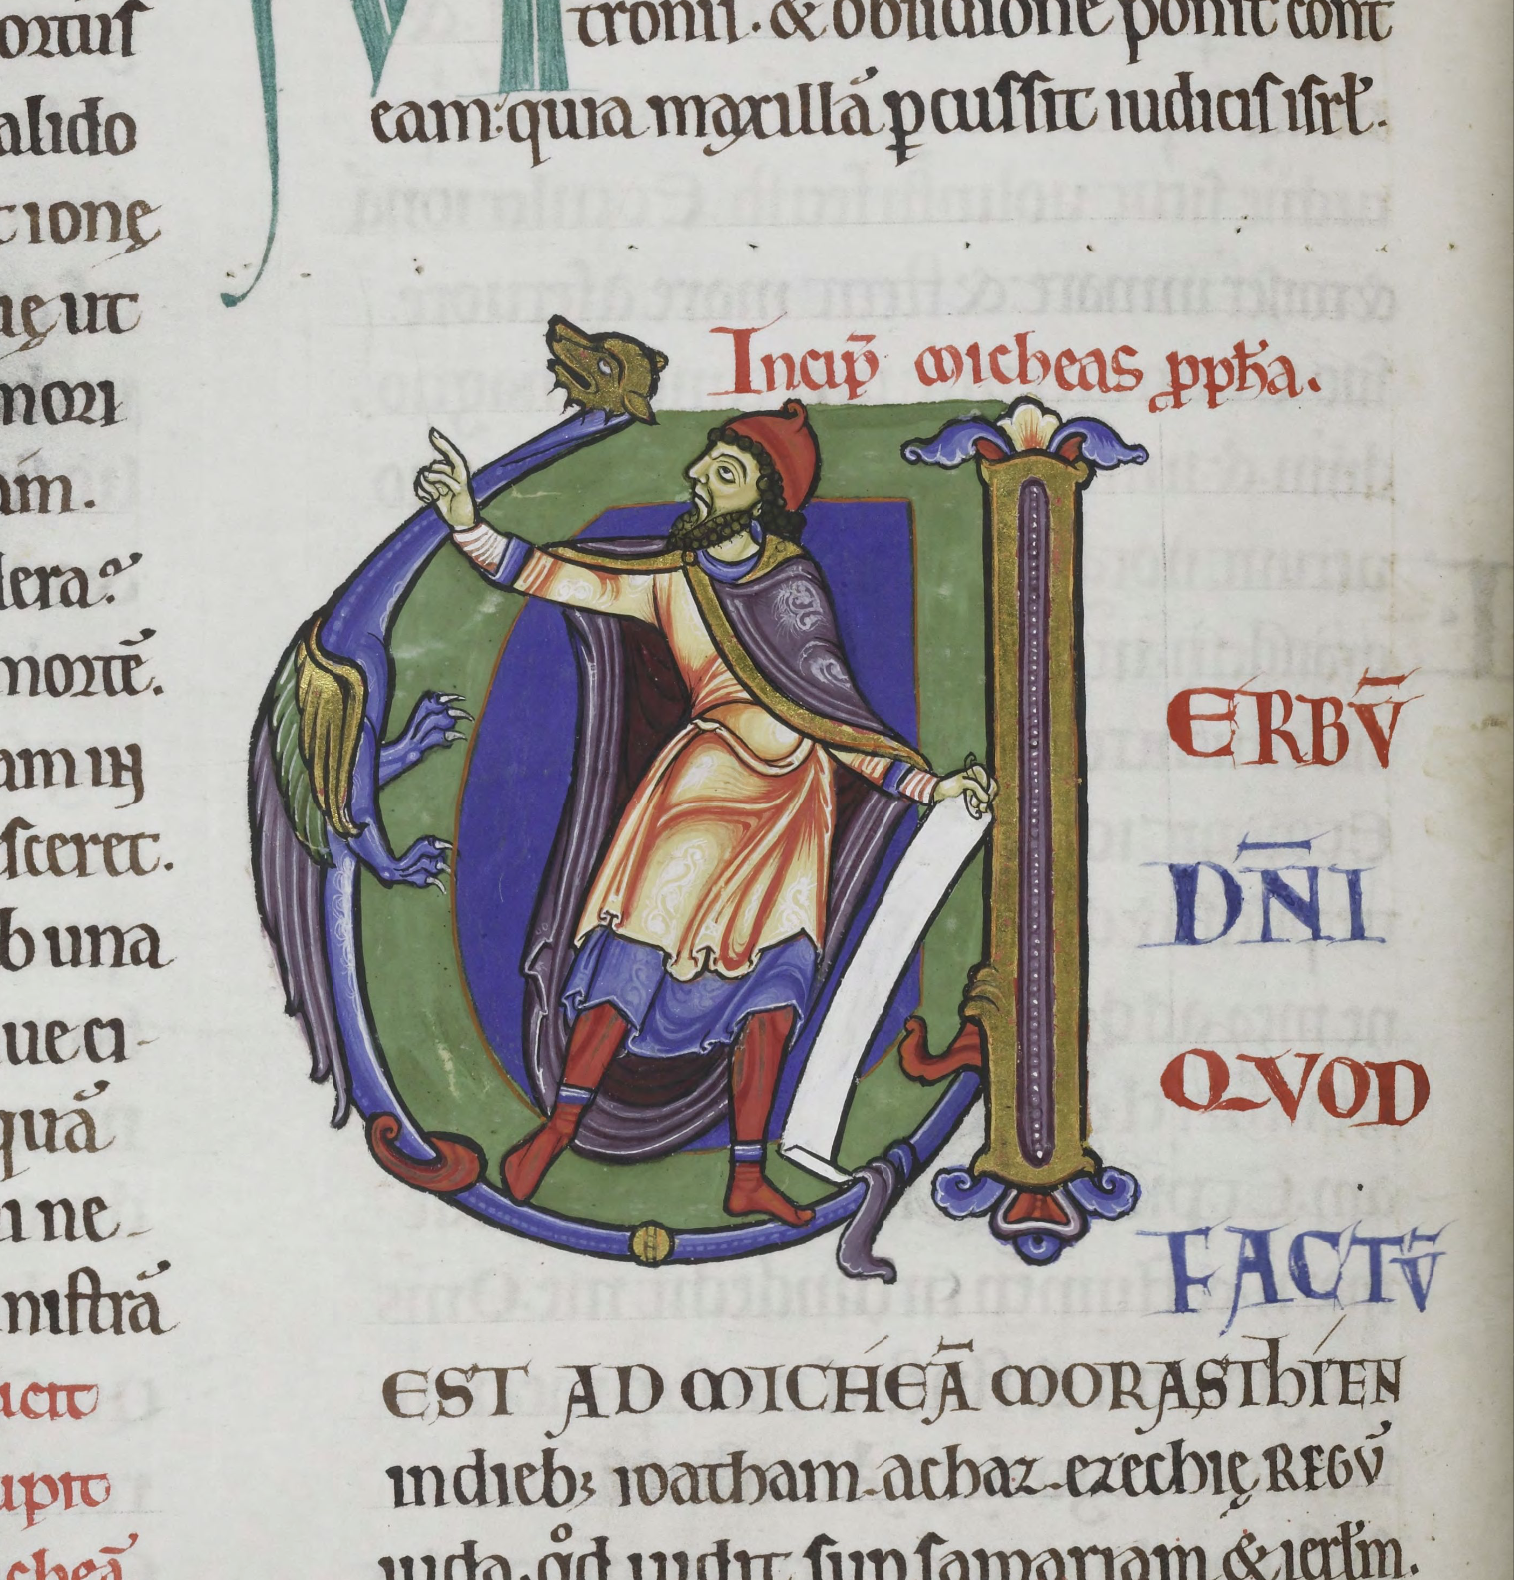 ortuſ
alido
tionę
ięut
mori
am.
dera
mortē.
am in
eſceret.
b una
ueci-
quā
ne-
niſtrā
acit
upit
cheā
tronii. & obſidione ponit cont
eam: quia maxillā ꝑcuſſit iudiciſ iſrł.
Incip̄ micheas ꝓpħa.
ERBV̄
DN̄I
QVOD
FACTV̄
EST AD MICHEĀ MORASThIEN
indieb; ioatham. achaz. ezechię REGV̄
iuda. qd̊ uidit ſup ſamariam & ierłm.